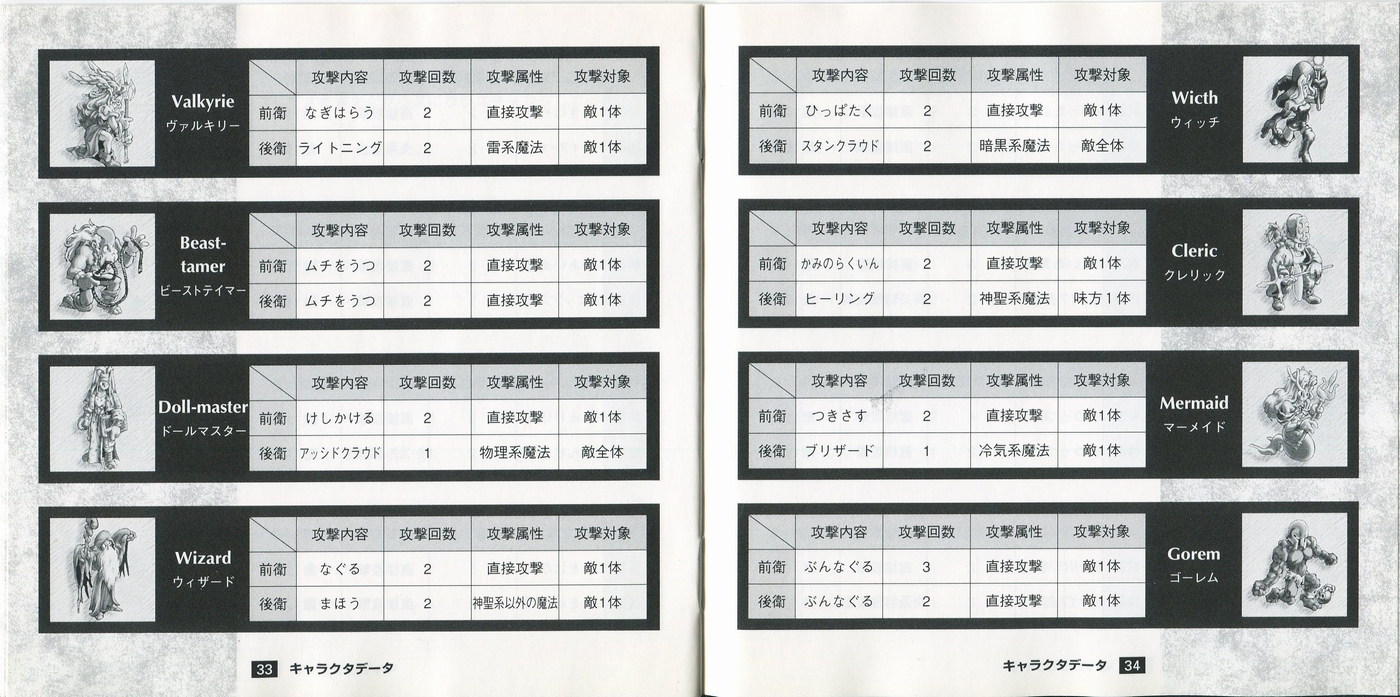 Valkyrie
ヴァルキリー
攻撃内容 攻撃回数 攻撃属性 攻撃対象
前衛 なぎはらう 2 直接攻撃 敵1体
後衛 ライトニング 2 雷系魔法 敵1体
Beast-
tamer
ビーストテイマー
攻撃内容 攻撃回数 攻撃属性 攻撃対象
前衛 ムチをうつ 2 直接攻撃 敵1体
後衛 ムチをうつ 2 直接攻撃 敵1体
Doll-master
ドールマスター
攻撃内容 攻撃回数 攻撃属性 攻撃対象
前衛 けしかける 2 直接攻撃 敵1体
後衛 アッシドクラウド 1 物理系魔法 敵全体
Wizard
ウィザード
攻撃内容 攻撃回数 攻撃属性 攻撃対象
前衛 なぐる 2 直接攻撃 敵1体
後衛 まほう 2 神聖系以外の魔法 敵1体
33 キャラクタデータ
攻撃内容 攻撃回数 攻撃属性 攻撃対象
前衛 ひっぱたく 2 直接攻撃 敵1体
後衛 スタンクラウド 2 暗黒系魔法 敵全体
Wicth
ウィッチ
攻撃内容 攻撃回数 攻撃属性 攻撃対象
前衛 かみのらくいん 2 直接攻撃 敵1体
後衛 ヒーリング 2 神聖系魔法 味方1体
Cleric
クレリック
攻撃内容 攻撃回数 攻撃属性 攻撃対象
前衛 つきさす 2 直接攻撃 敵1体
後衛 ブリザード 1 冷気系魔法 敵1体
Mermaid
マーメイド
攻撃内容 攻撃回数 攻撃属性 攻撃対象
前衛 ぶんなぐる 3 直接攻撃 敵1体
後衛 ぶんなぐる 2 直接攻撃 敵1体
Gorem
ゴーレム
キャラクタデータ 34